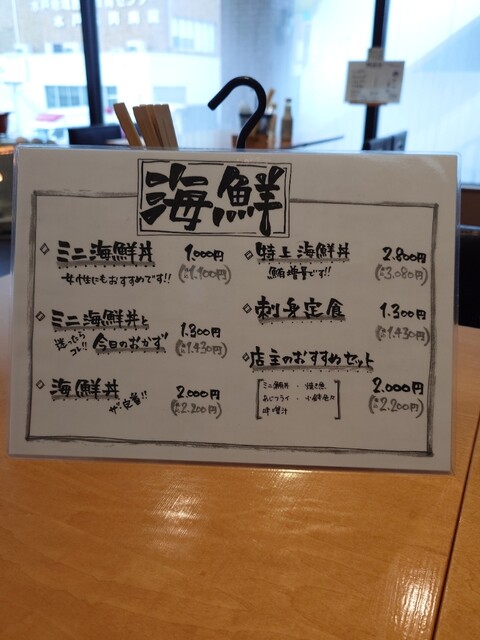 海鮮
ミニ海鮮丼 1.000円
(税込1.100円)
女性にもおすすめです!!
ミニ海鮮丼と 1.300円
迷ったらコレ!! 今日のおかず (税込1.430円)
海鮮丼 2.000円
ザ・定番!! (税込2.200円)
特上海鮮丼 2.800円
鮪増量です!! (税込3.080円)
刺身定食 1.300円
(税込1.430円)
店主のおすすめセット
ミニ鮪丼 ・ 焼き魚 2.000円
あじフライ ・ 小鉢 (税込2.200円)
味噌汁